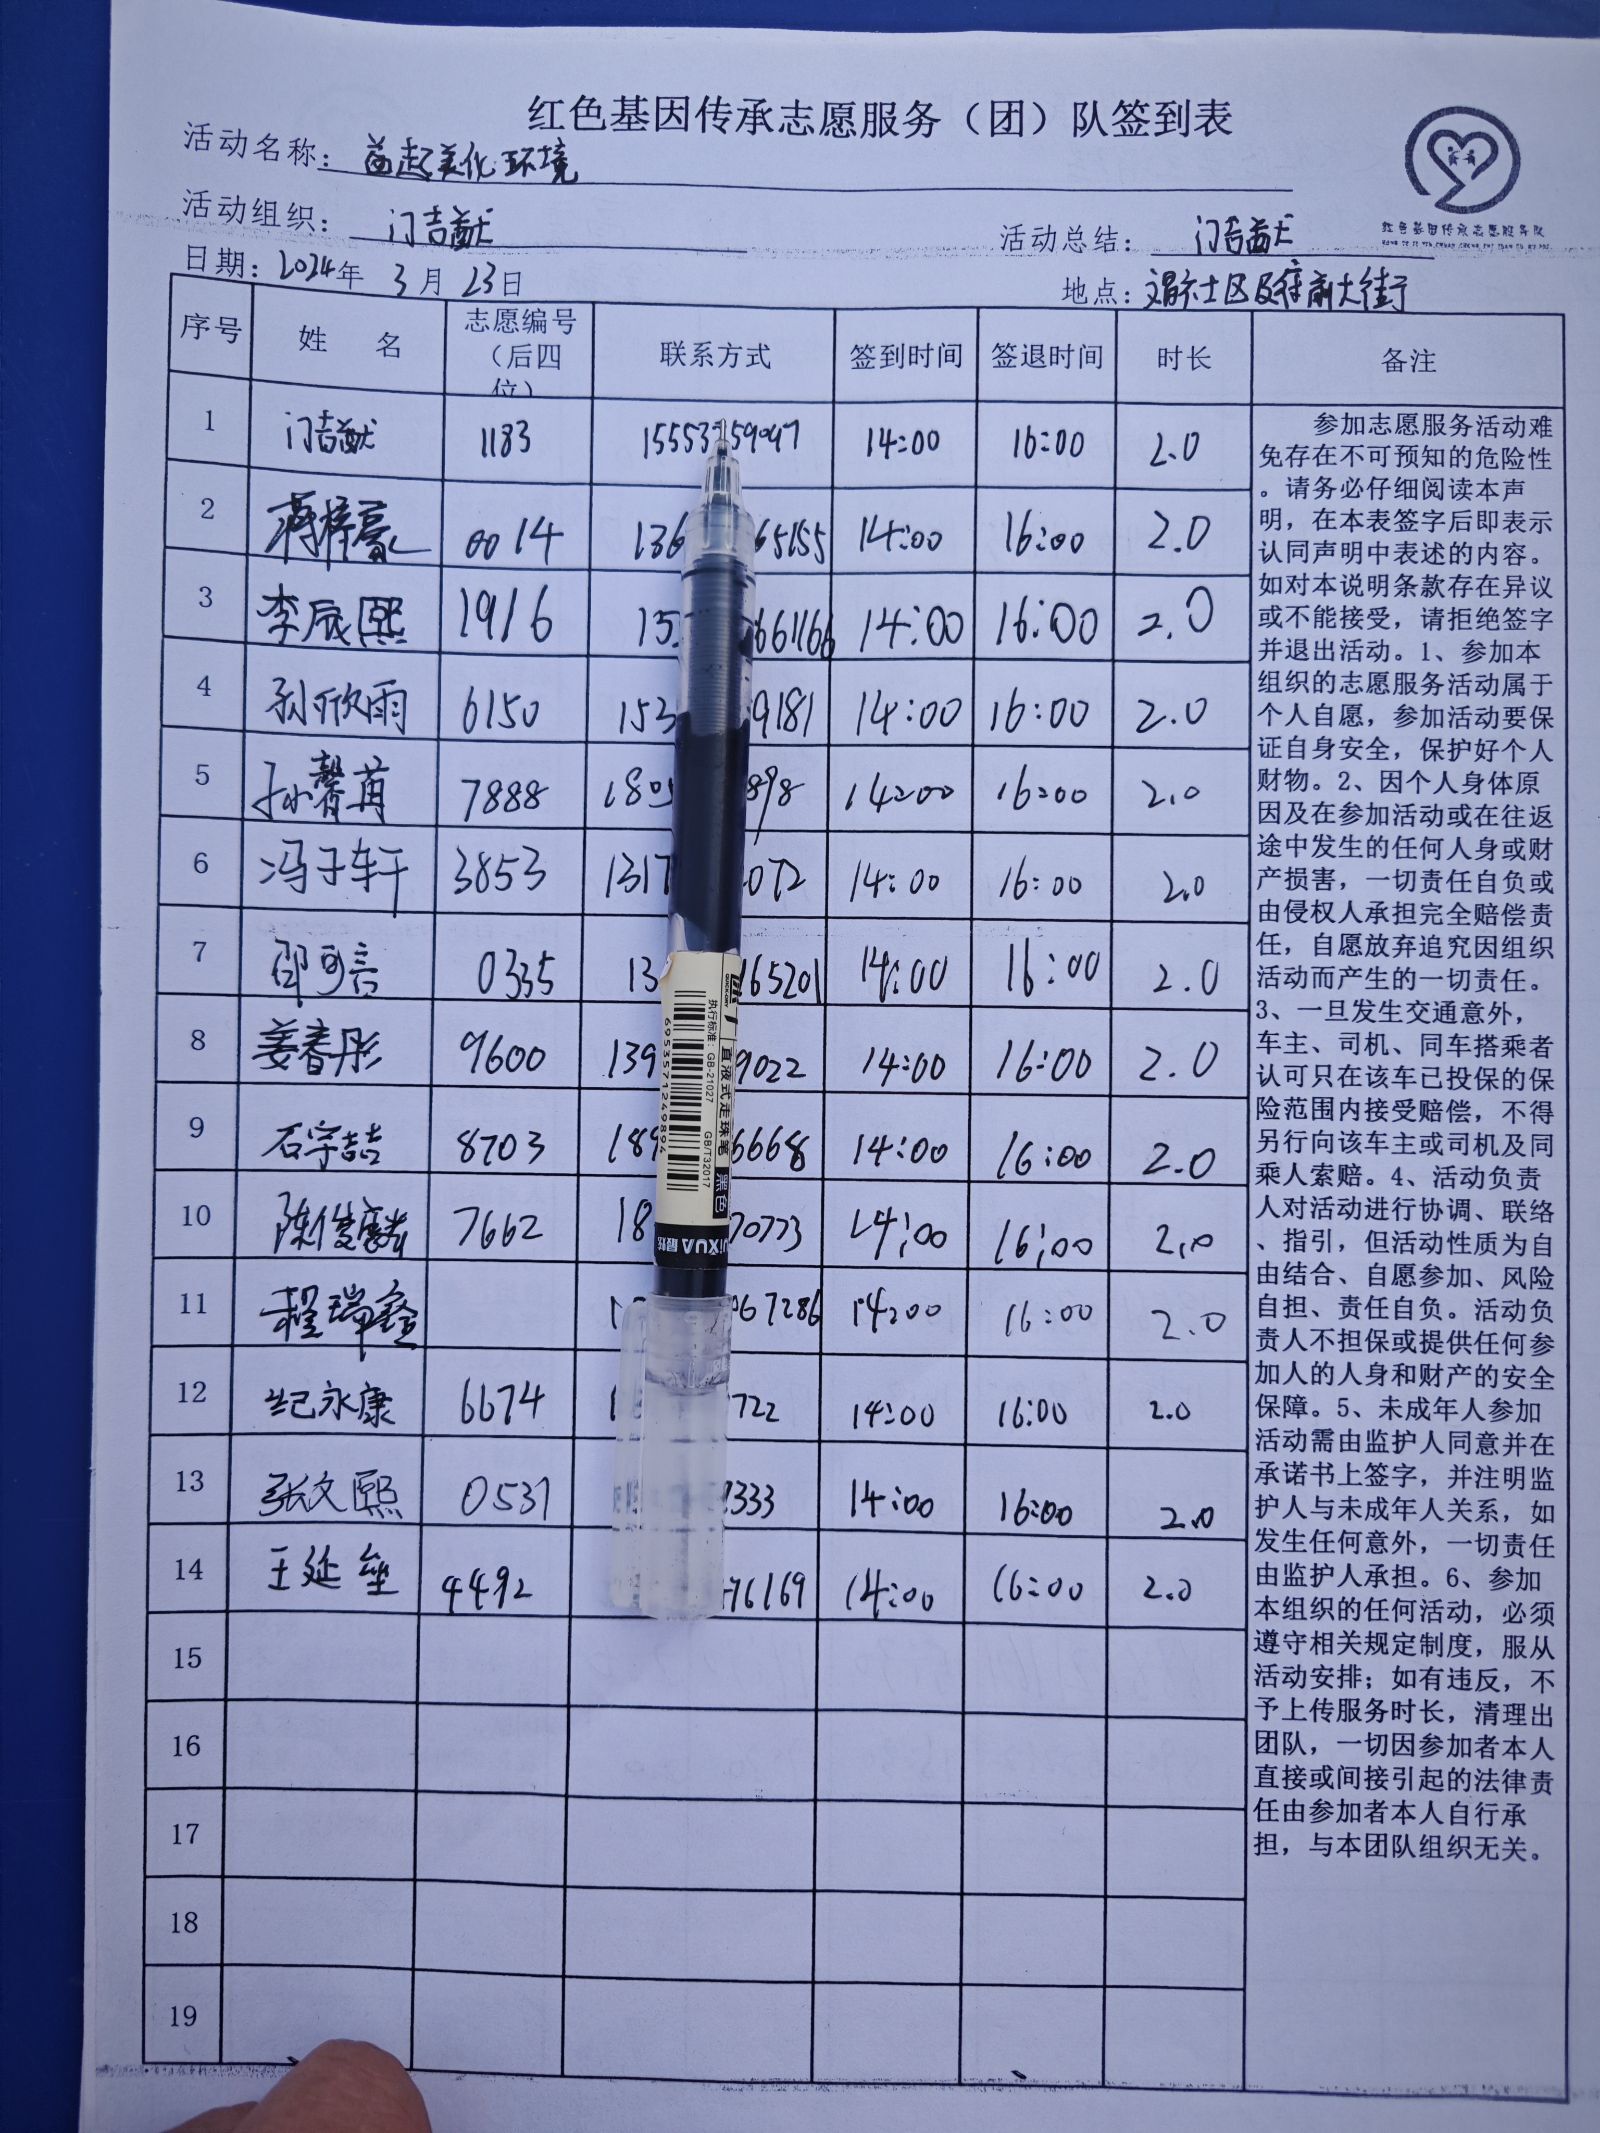 红色基因传承志愿服务（团）队签到表
活动名称：益起美化环境
活动组织：门吉猷 活动总结：门吉猷
日期：2024年 3月 23日 地点：社区及 前大街
红色基因传承志愿服务队
序号 姓 名 志愿编号（后四位） 联系方式 签到时间 签退时间 时长 备注
1 门吉猷 1183 14:00 16:00 2.0
2 蒋梓豪 0014 136 65155 14:00 16:00 2.0
3 李辰熙 1916 661166 14:00 16:00 2.0
4 孙欣雨 6150 153 9181 14:00 16:00 2.0
5 孙馨苒 7888 1805 898 14:00 16:00 2.0
6 冯子轩 3853 1317 072 14:00 16:00 2.0
7 邵可言 0335 13 165201 14:00 16:00 2.0
8 姜春彤 9600 139 9022 14:00 16:00 2.0
9 石宇喆 8703 189 6668 14:00 16:00 2.0
10 陈俊麟 7662 18 70773 14:00 16:00 2.0
11 程瑞鑫 67286 14:00 16:00 2.0
12 纪永康 6674 722 14:00 16:00 2.0
13 张文熙 0531 333 14:00 16:00 2.0
14 王延垒 4492 76169 14:00 16:00 2.0
15
16
17
18
19
参加志愿服务活动难
免存在不可预知的危险性
。请务必仔细阅读本声
明，在本表签字后即表示
认同声明中表述的内容。
如对本说明条款存在异议
或不能接受，请拒绝签字
并退出活动。1、参加本
组织的志愿服务活动属于
个人自愿，参加活动要保
证自身安全，保护好个人
财物。2、因个人身体原
因及在参加活动或在往返
途中发生的任何人身或财
产损害，一切责任自负或
由侵权人承担完全赔偿责
任，自愿放弃追究因组织
活动而产生的一切责任。
3、一旦发生交通意外，
车主、司机、同车搭乘者
认可只在该车已投保的保
险范围内接受赔偿，不得
另行向该车主或司机及同
乘人索赔。4、活动负责
人对活动进行协调、联络
、指引，但活动性质为自
由结合、自愿参加、风险
自担、责任自负。活动负
责人不担保或提供任何参
加人的人身和财产的安全
保障。5、未成年人参加
活动需由监护人同意并在
承诺书上签字，并注明监
护人与未成年人关系，如
发生任何意外，一切责任
由监护人承担。6、参加
本组织的任何活动，必须
遵守相关规定制度，服从
活动安排；如有违反，不
予上传服务时长，清理出
团队，一切因参加者本人
直接或间接引起的法律责
任由参加者本人自行承
担，与本团队组织无关。
QUICK-DRY
直液式走珠笔 黑色
执行标准：GB-21027 GB/T32017
6953571249894